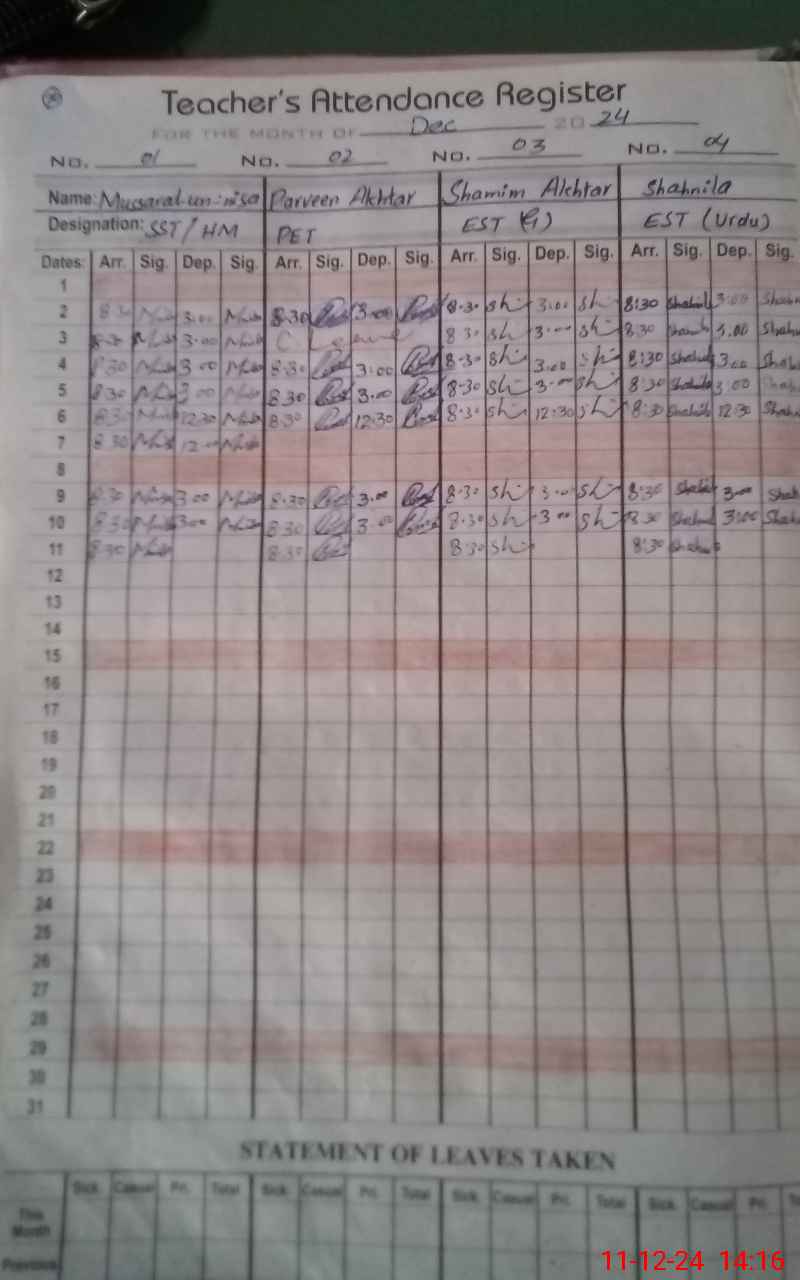 Teacher's Attendance Register
FOR THE MONTH OF Dec 20 24
No. 01 No. 02 No. 03 No. 04
Name: Mussarat-un-nisa Parveen Akhtar Shamim Akhtar Shahnila
Designation: SST/HM PET EST EST (Urdu)
Dates: Arr. Sig. Dep. Sig. Arr. Sig. Dep. Sig. Arr. Sig. Dep. Sig. Arr. Sig. Dep. Sig.
1
2 8.30 3.00 8.30 3.00 8.30 Sh 3.00 Sh 8:30 Shahnil 3:00 Shahn
3 8.30 3.00 C Leave 8 30 Sh 3.00 Sh 8:30 3.00 Shahn
4 8.30 3 00 8.30 3:00 8.30 Sh 3.00 Sh 8:30 3.00
5 8.30 3 00 8.30 3.00 8.30 Sh 3.00 Sh 8:30 3:00
6 8.30 12.30 8.30 12.30 8.30 Sh 12:30 Sh 8:30 12:30 Shahn
7 8 30 12.00
8
9 8.30 3 00 8.30 3.00 8.30 Sh 3.00 Sh 8:30 3.00
10 8.30 3.00 8.30 3.00 8.30 Sh 3 00 Sh 8.30 3:00 Shahn
11 8.30 8.30 8.30 Sh 8:30
12
13
14
15
16
17
18
19
20
21
22
23
24
25
26
27
28
29
30
31
STATEMENT OF LEAVES TAKEN
Sick Casual Pri. Total Sick Casual Pri. Total Sick Casual Pri. Total Sick Casual Pri.
This Month
Previous
11-12-24 14:16